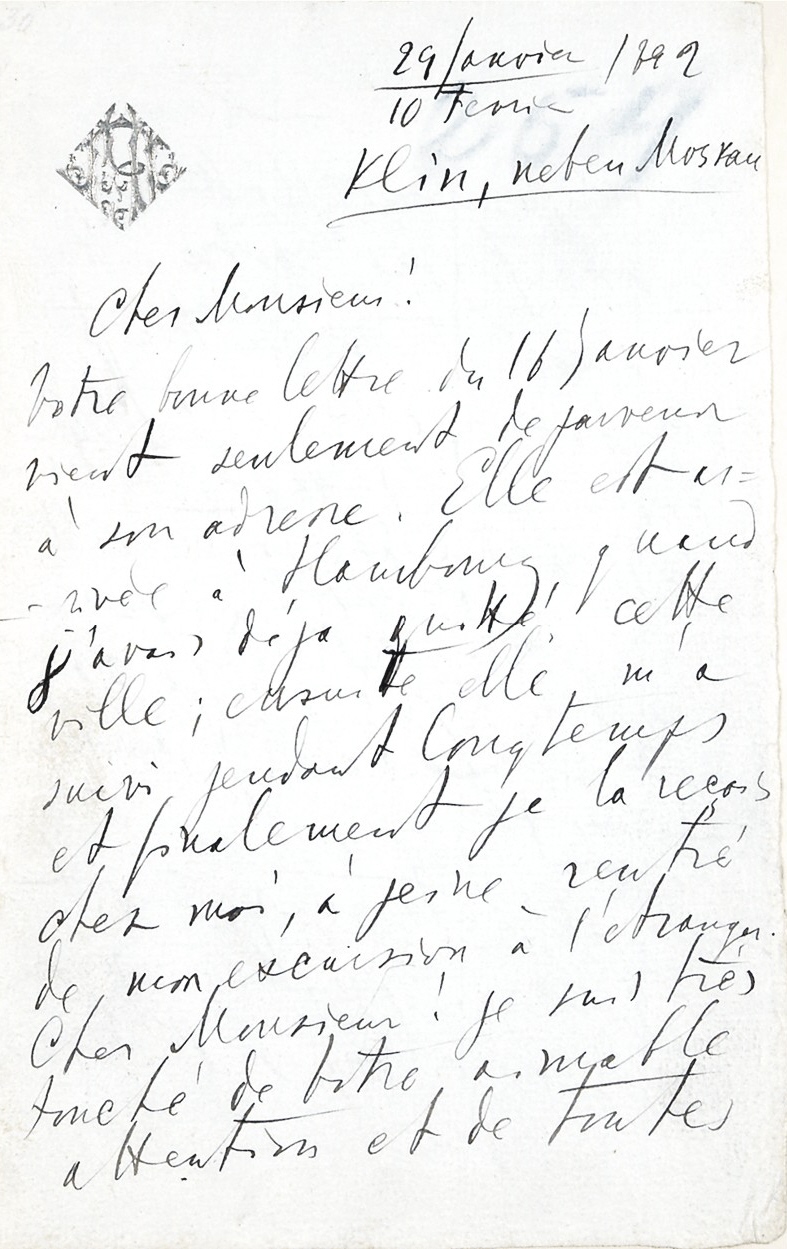 29 Janvier / 1892
10 Fevrier
Klin, neben Moskau
Cher Monsieur!
Votre bonne lettre du 16 Janvier
vient seulement de parvenir
à son adresse. Elle est ar=
-rivée à Hambourg, quand
j'avais déja quitté cette
ville; ensuite elle m'a
suivi pendant longtemps
et finalement je la reçois
chez moi, à peine rentré
de mon excursion à l'étranger.
Cher Monsieur! je suis très
touché de Votre aimable
attention et de toutes